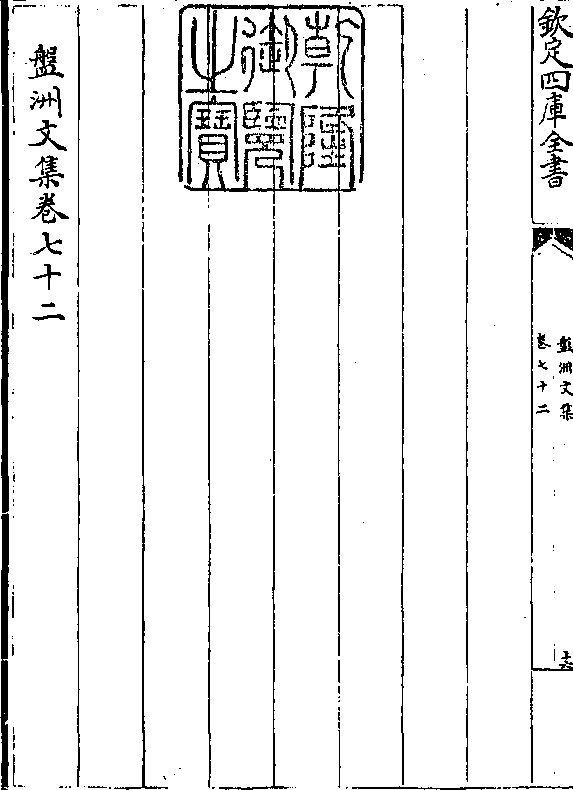 欽定四庫全書
盤洲文集
卷七十二
十六
乾隆
御覽
之寶
盤洲文集卷七十二